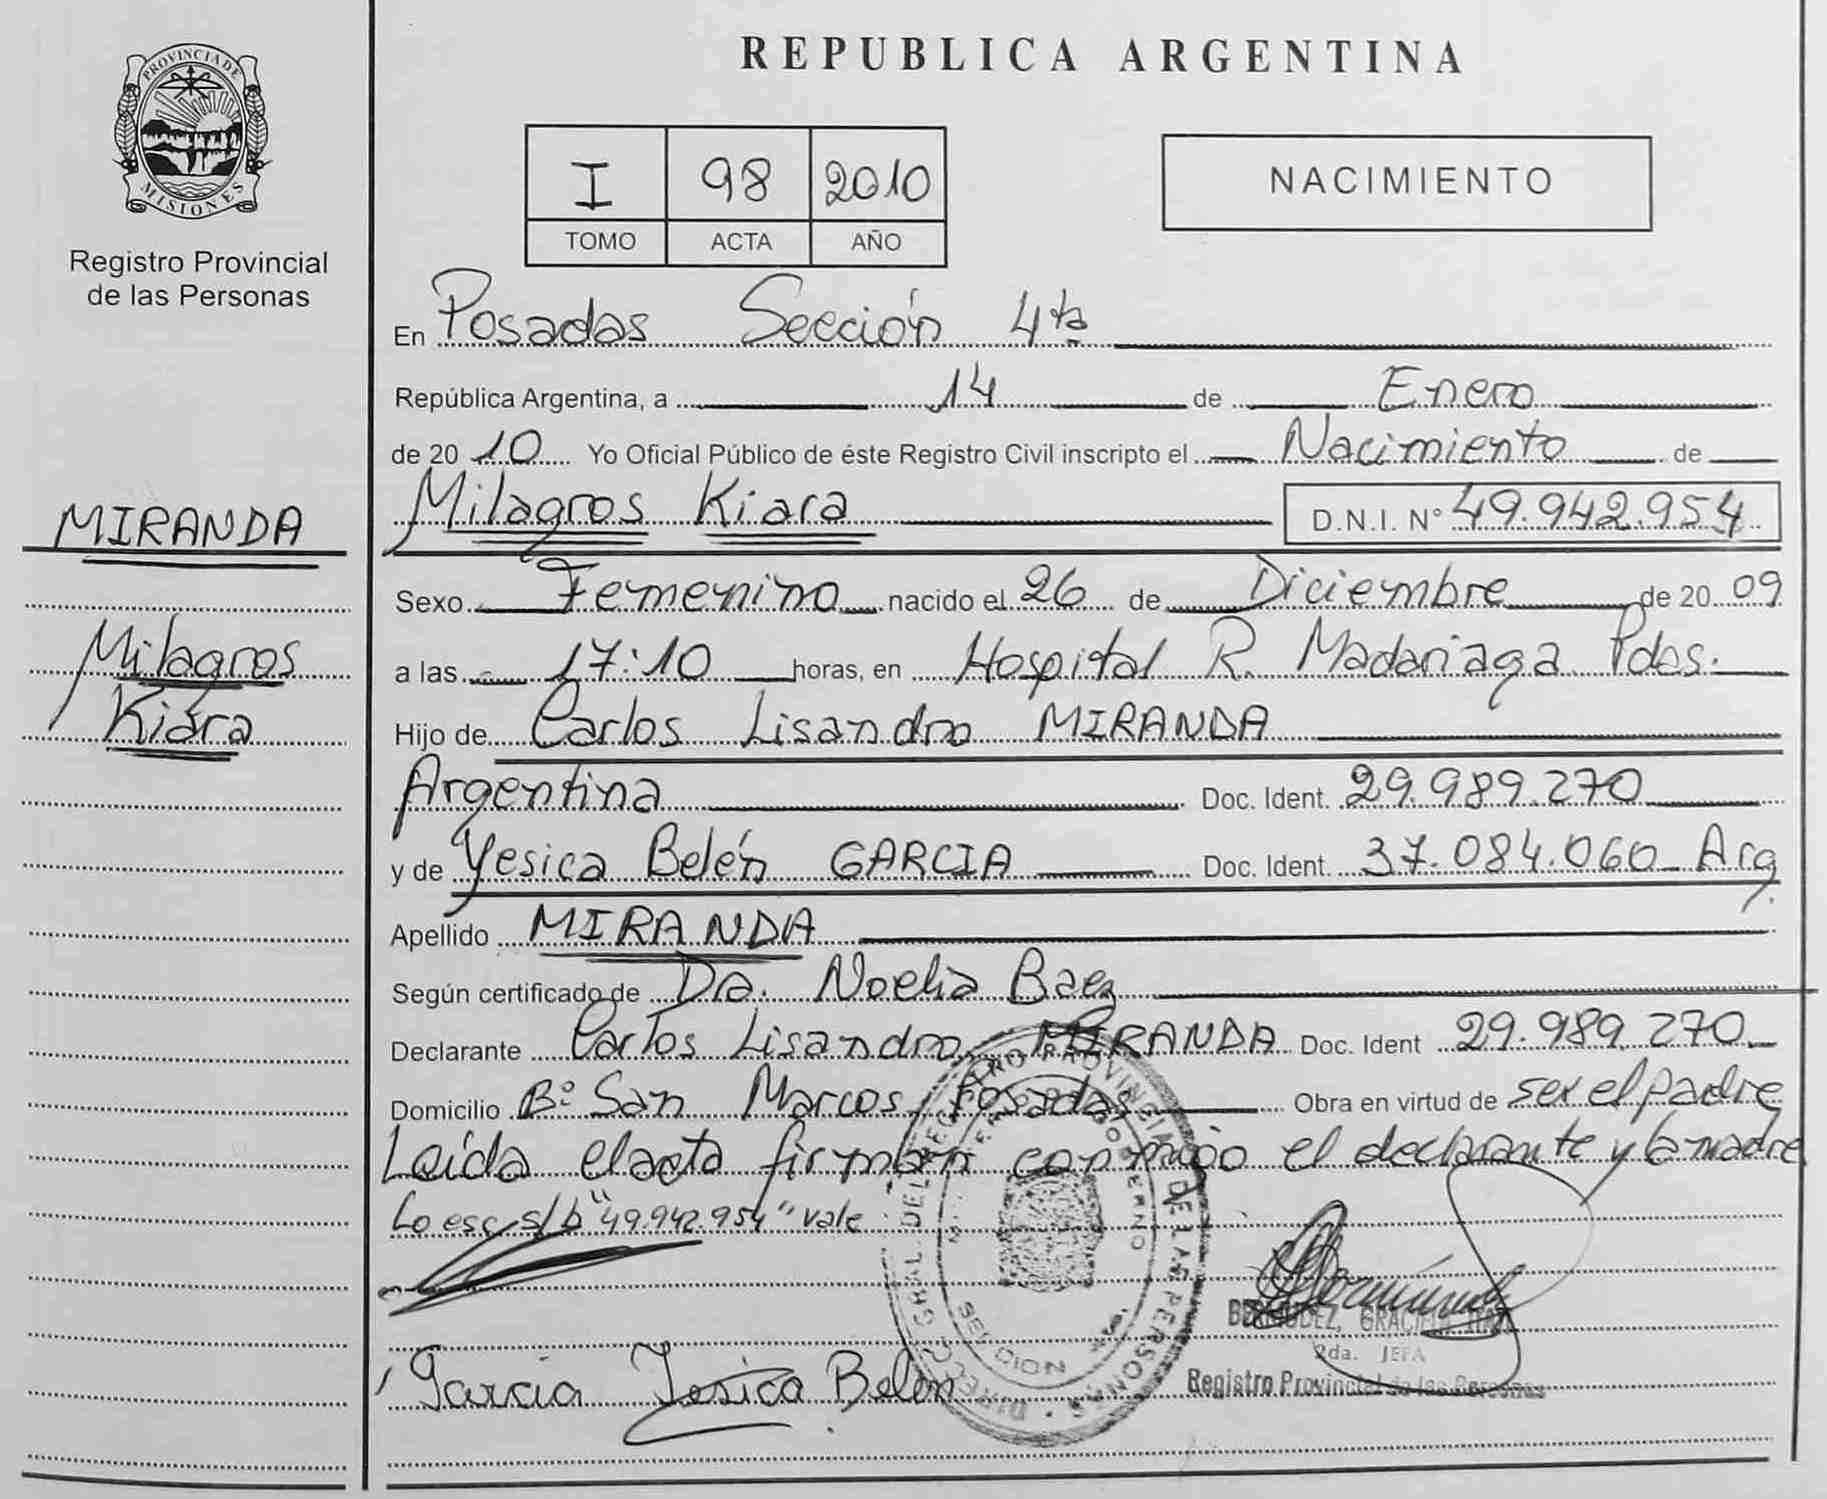 PROVINCIA DE
MISIONES
Registro Provincial
de las Personas
MIRANDA
Milagros
Kiara
REPUBLICA ARGENTINA
I 98 2010
TOMO ACTA AÑO
NACIMIENTO
En Posadas Sección 4ta
República Argentina, a 14 de Enero
de 20 10 Yo Oficial Público de éste Registro Civil inscripto el Nacimiento de
Milagros Kiara D.N.I. N° 49.942.954
Sexo Femenino nacido el 26 de Diciembre de 20 09
a las 17:10 horas, en Hospital R. Madariaga Pdas.
Hijo de Carlos Lisandro MIRANDA
Argentina Doc. Ident. 29.989.270
y de Yesica Belén GARCIA Doc. Ident. 37.084.060 Arg.
Apellido MIRANDA
Según certificado de Dra. Noelia Baez
Declarante Carlos Lisandro MIRANDA Doc. Ident 29.989.270
Domicilio B° San Marcos, Posadas Obra en virtud de ser el padre
Leída el acta firman conmigo el declarante y la madre
Lo esc. s/b "49.942.954" vale
BERMUDEZ, GRACIELA
2da. JEFA
Garcia Jesica Belén
Registro Provincial de las Personas